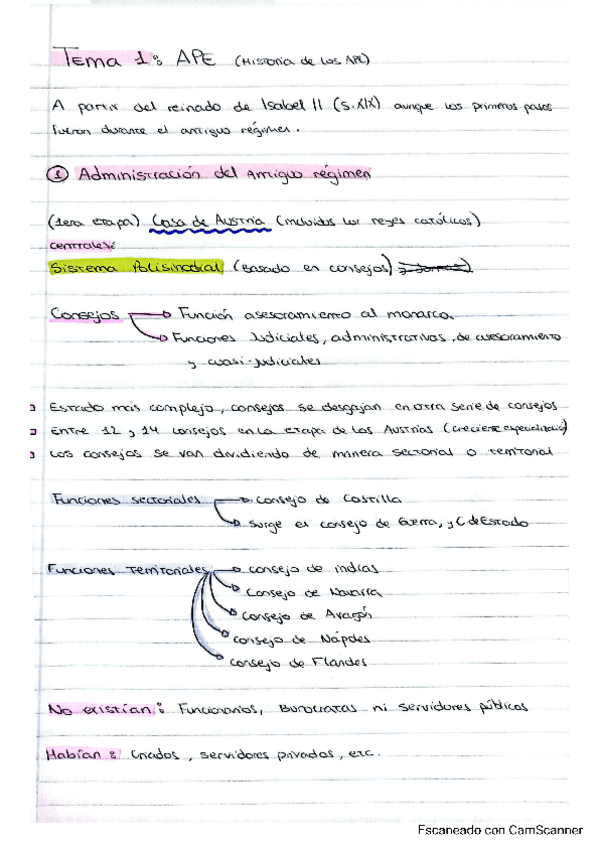 Tema 1: APE (Historia de las APE)
A partir del reinado de Isabel II (s.XIX) aunque los primeros pasos
fueron durante el antiguo régimen.
① Administración del antiguo régimen
(1era etapa) Casa de Austria (incluidos los reyes católicos)
centrales:
Sistema Polisinodial (Basado en consejos)
Consejos → Función asesoramiento al monarca.
→ Funciones Judiciales, administrativas, de asesoramiento
y cuasi-judiciales
Estado más complejo, consejos se desgajan en otra serie de consejos
Entre 12 y 14 consejos en la etapa de los Austrias (creciente especialización)
Los consejos se van dividiendo de manera sectorial o territorial
Funciones sectoriales → Consejo de Castilla
→ Surge el consejo de Guerra, y C de Estado
Funciones Territoriales → consejo de indias
→ Consejo de Navarra
→ Consejo de Aragón
→ consejo de Nápoles
→ consejo de Flandes
No existían: Funcionarios, Burócratas ni servidores públicos
Habían: Criados, servidores privados, etc.
Escaneado con CamScanner